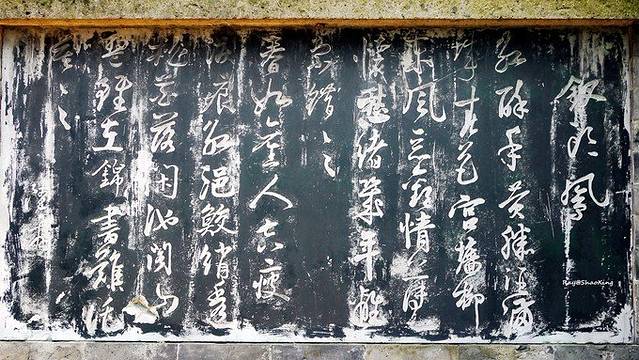 釵頭鳳
紅酥手黄縢酒滿
城春色宮墻柳
東風惡歡情薄一
懷愁緒幾年離
索錯々々
春如舊人空瘦
淚痕紅浥鮫綃透
桃花落閑池閣山
盟雖在錦書難托
莫々々
Ray@ShaoXing